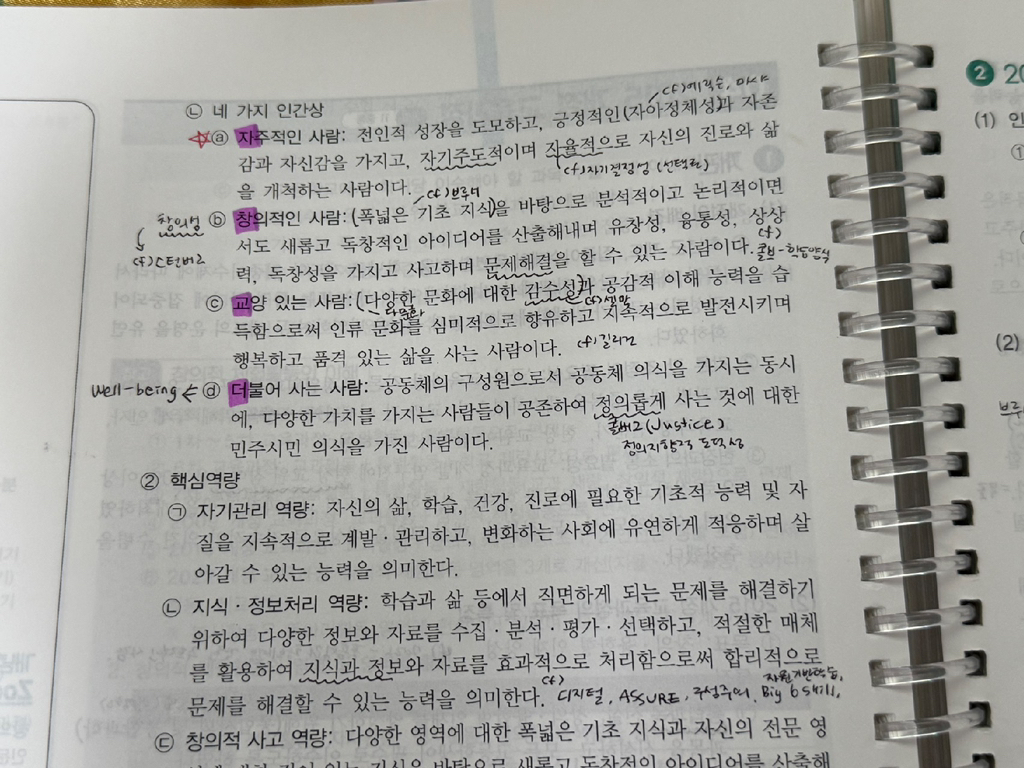 ㉡ 네 가지 인간상
cf) 에릭슨, 마샤
ⓐ 자주적인 사람: 전인적 성장을 도모하고, 긍정적인 (자아정체성)과 자존
감과 자신감을 가지고, 자기주도적이며 자율적으로 자신의 진로와 삶
cf) 자기결정성 (선택권)
을 개척하는 사람이다.
cf) 브루너
창의성
ⓑ 창의적인 사람: (폭넓은 기초 지식)을 바탕으로 분석적이고 논리적이면
cf) 스턴버그
서도 새롭고 독창적인 아이디어를 산출해내며 유창성, 융통성, 상상
cf)
력, 독창성을 가지고 사고하며 문제해결을 할 수 있는 사람이다.
콜브-학습양식
ⓒ 교양 있는 사람: (다양한 문화에 대한 감수성)과 공감적 이해 능력을 습
다문화
득함으로써 인류 문화를 심미적으로 향유하고 지속적으로 발전시키며
행복하고 품격 있는 삶을 사는 사람이다.
cf) 길리건
well-being ← ⓓ 더불어 사는 사람: 공동체의 구성원으로서 공동체 의식을 가지는 동시
에, 다양한 가치를 가지는 사람들이 공존하여 정의롭게 사는 것에 대한
콜버그 (Justice)
민주시민 의식을 가진 사람이다.
정의지향적 도덕성
② 핵심역량
㉠ 자기관리 역량: 자신의 삶, 학습, 건강, 진로에 필요한 기초적 능력 및 자
질을 지속적으로 계발·관리하고, 변화하는 사회에 유연하게 적응하며 살
아갈 수 있는 능력을 의미한다.
㉡ 지식·정보처리 역량: 학습과 삶 등에서 직면하게 되는 문제를 해결하기
위하여 다양한 정보와 자료를 수집·분석·평가·선택하고, 적절한 매체
를 활용하여 지식과 정보와 자료를 효과적으로 처리함으로써 합리적으로
문제를 해결할 수 있는 능력을 의미한다.
cf) 디지털, ASSURE, 구성주의, Big 6 skill,
자원기반학습,
㉢ 창의적 사고 역량: 다양한 영역에 대한 폭넓은 기초 지식과 자신의 전문 영
② 20
(1) 인
(2)